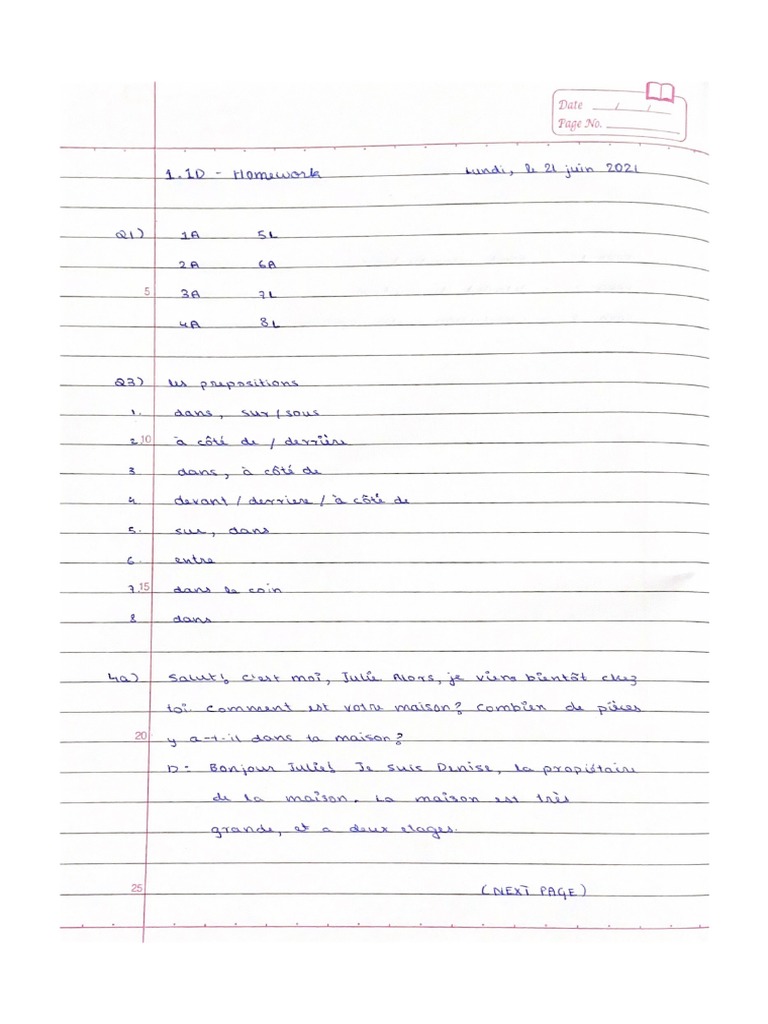 Date __/__/__
Page No. ______
1.1D - Homework Lundi, le 21 juin 2021
Q1) 1A 5L
2A 6A
5 3A 7L
4A 8L
Q3) Les prepositions
1. dans, sur/sous
2. 10 à côté de / derrière
3. dans, à côté de
4. devant / derriere / à côté de
5. sur, dans
6. entre
7. 15 dans le coin
8 dans
4a) Salut! C'est moi, Julie Alors, je viens bientôt chez
toi. Comment est votre maison? Combien de pièces
20 y a-t-il dans ta maison?
D: Bonjour Julie! Je suis Denise, la propiétaire
de la maison. La maison est très
grande, et a deux etages.
25 (NEXT PAGE)